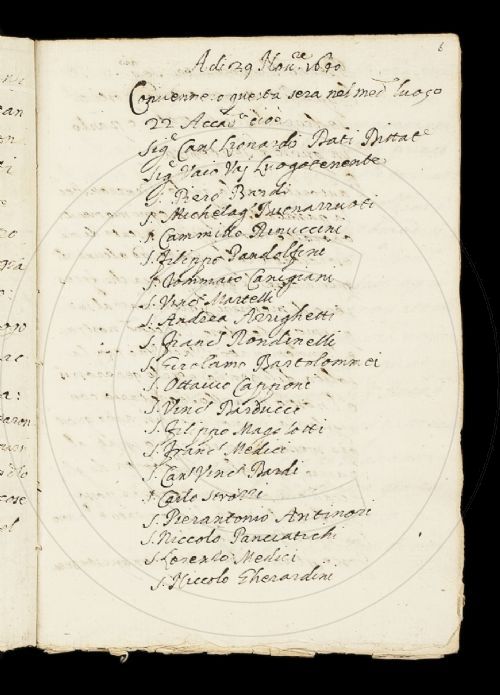 6
A dì 29 Nov.re 1640
Convennero questa sera nel med.o luogo
22 Accad.ci cioè
Sig.r Can.co Lionardo Dati Dittat.e
Sig.r Luogotenente
S. Piero Bardi
S. Michelag.o Buonarruoti
S. Cammillo Rinuccini
S. Filippo Pandolfini
S. Tommaso Canigiani
S. Vinc.o Martelli
S. Andrea Arrighetti
S. Franc.o Rondinelli
S. Girolamo Bartolommei
S. Ottavio Capponi
S. Vinc.o Barducci
S. Filippo Magalotti
S. Franc.o Medici
S. Can.co Vinc.o Bardi
S. Carlo Strozzi
S. Pierantonio Antinori
S. Niccolo Panciatichi
S. Lorenzo Medici
S. Niccolo Gherardini